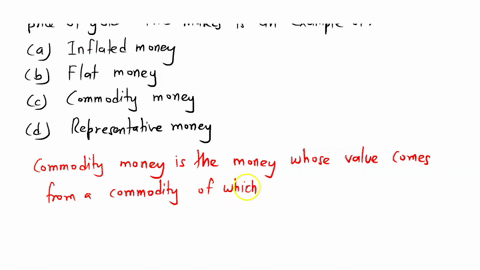 price of gold
is an example of
(a) Inflated money
(b) Flat money
(c) Commodity money
(d) Representative money
Commodity money is the money whose value comes
from a commodity of which